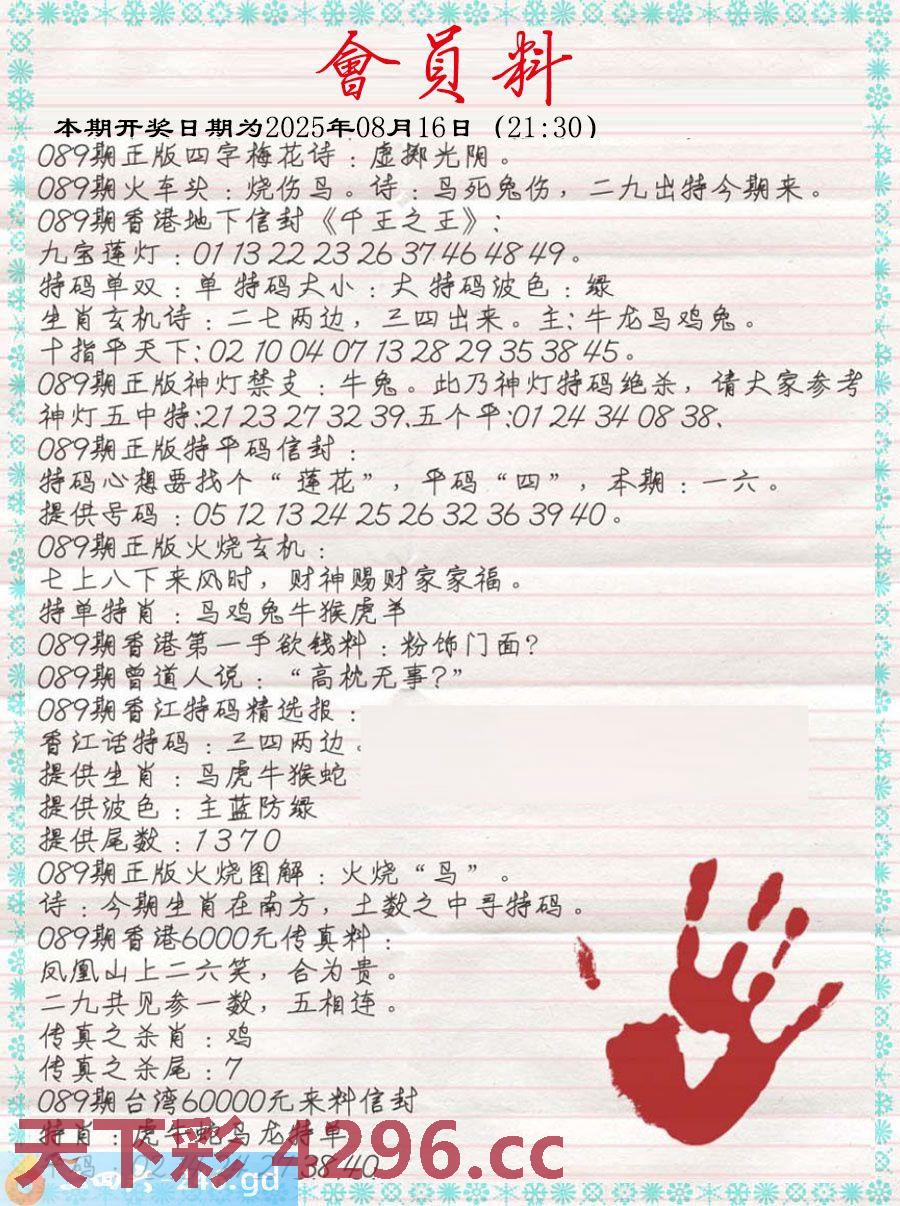 會員料
本期开奖日期为2025年08月16日（21:30）
089期正版四字梅花诗：虚掷光阴。
089期火车头：烧伤鸟。诗：鸟死兔伤，二九出特今期来。
089期香港地下信封《千王之王》:
九宝莲灯：01 13 22 23 26 37 46 48 49。
特码单双：单 特码大小：大 特码波色：绿
生肖玄机诗：二七两边，三四出来。主:牛龙鸟鸡兔。
十指平天下:02 10 04 07 13 28 29 35 38 45。
089期正版神灯禁支：牛兔。此乃神灯特码绝杀，请大家参考
神灯五中特:21 23 27 32 39.五个平:01 24 34 08 38.
089期正版特平码信封：
特码心想要找个“莲花”，平码“四”，本期：一六。
提供号码：05 12 13 24 25 26 32 36 39 40。
089期正版火烧玄机：
七上八下来风时，财神赐财家家福。
特单特肖：马鸡兔牛猴虎羊
089期香港第一手欲钱料：粉饰门面?
089期曾道人说：“高枕无事?”
089期香江特码精选报：
香江话特码：三四两边。
提供生肖：马虎牛猴蛇
提供波色：主蓝防绿
提供尾数：1 3 7 0
089期正版火烧图解：火烧“鸟”。
诗：今期生肖在南方，土数之中寻特码。
089期香港6000元传真料：
凤凰山上二六笑，合为贵。
二九共见参一数，五相连。
传真之杀肖：鸡
传真之杀尾：7
089期台湾60000元来料信封
特肖：虎牛蛇马龙特单
天下彩 4296.cc
38 40
.gd